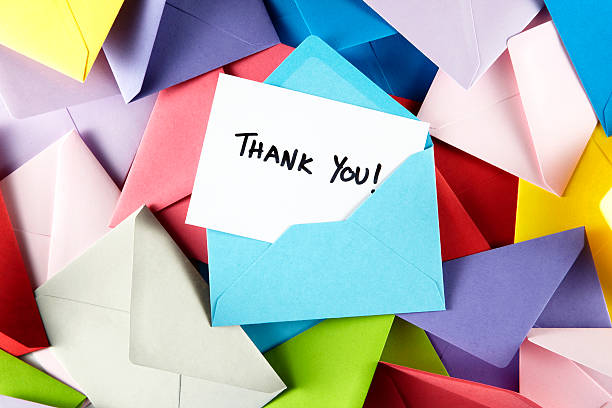 THANK YOU!